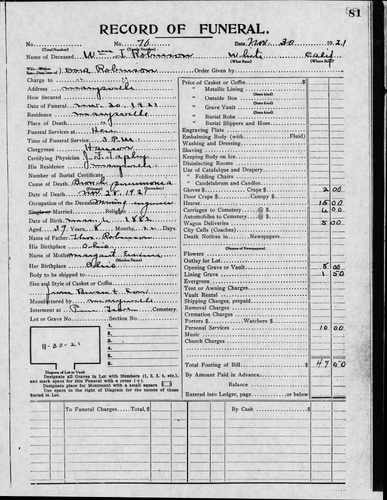 81
RECORD OF FUNERAL.
No. No. 70 Date, Nov. 30 1921
(Total Number) (Yearly Number)
Name of Deceased Wm Robinson White Calif
(What Race) (Where Born)
Cora Robinson Order Given by
Charge to
Address Marysville
How Secured
Date of Funeral Nov. 30 1921
Residence Marysville
Place of Death
Funeral Services at
Time of Funeral Service
Clergyman
Certifying Physician
His Residence Marysville
Number of Burial Certificate
Cause of Death Bronch pneumonia
Date of Death Nov. 28, 192
Occupation of the Deceased Mining engineer
Single or Married Religion
Date of Birth 1882
Aged 39 Years, 8 Months, Days
Name of Father Thos. Robinson
His Birthplace Ohio
Name of Mother
Her Birthplace Ohio
Body to be shipped to
Size and Style of Casket or Coffin
Manufactured by Marysville
Interment at Cemetery.
Lot or Grave No.
11-30-21
Diagram of Lot or Vault
Designate all Graves in Lot with Numbers (1, 2, 3, 4, etc.),
and mark space for this Funeral with a cross (+).
Designate place for Monument with a small square
Use space to the right of Diagram for the names of those
buried in Lot
Price of Casket or Coffin $
" Metallic Lining
(State kind)
" Outside Box
(State kind)
" Grave Vault
(State kind)
" Burial Robe
(State kind)
" Burial Slippers and Hose
Engraving Plate
Embalming Body (with Fluid)
Washing and Dressing
Shaving
Keeping Body on Ice
Disinfecting Rooms
Use of Catafalque and Drapery
" Folding Chairs
" Candelabrum and Candles
Gloves $ Crape $ 2 00
Door Crape $ Canopy $
Hearse 15 00
Carriages to Cemetery @ $ 6 00
Automobiles to Cemetery @ $
Wagon Deliveries 5 00
City Calls (Coaches)
Death Notices in Newspapers
(Names of Newspapers)
Flowers
Outlay for Lot
Opening Grave or Vault 5 00
Lining Grave
Evergreen
Tent or Awning Charges
Vault Rental
Shipping Charges, prepaid
Removal Charges
Cremation Charges
Porters $ Watchers $
Personal Services 10 00
Music
Church Charges
Total Footing of Bill $
By Amount Paid in Advance
Balance
Entered into Ledger, page or below.
To Funeral Charges Total, $ By Cash $